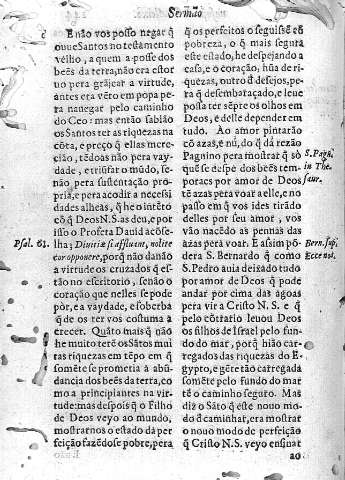 Sermão
E não vos posso negar q̃
ouue Santos no testamento
vélho, a quem a posse dos
beẽs da terra, não era estor
uo pera grãjear a virtude,
antes era vẽto em popa pe
ra nauegar pelo caminho
do Ceo: mas então sabião
os Santos ter as riquezas na
cõta, e preço q̃ ellas mere-
cião, tẽdoas não pera vay-
dade, e triũfar o mũdo, se-
não pera sustentação pro-
pria, e pera acodir a necessi
dades alheas, q̃ he o intẽto
cõ q̃ Deos N.S. as deu, e por
isso o Profeta Dauid acõse-
Psal. 61.
lhaua; Diuitiæ si affluent, nolite
cor apponere, porq̃ não danão
a virtude os cruzados q̃ es-
tão no escritorio, senão o
coração que nelles se pode
pór, e a vaydade, e soberba
q̃ de os ter vos costuma a
crecer. Quãto mais q̃ não
he muito terẽ os Sãtos mui
tas riquezas em tẽpo em q̃
somẽte se prometia a abũ-
dancia dos beẽs da terra, co
mo a principiantes na vir-
tude: mas despois q̃ o Filho
de Deos veyo ao mundo,
mostrarnos o estado da per
feição fazẽdose pobre, pera
q̃ os perfeitos o seguissẽ cõ
pobreza, o q̃ mais segura
este estado, he despejando a
casa, e o coração, hũa de ri-
quezas, outro d̃ desejos, pe-
ra q̃ desembaraçado, e leue
possa ter sẽpre os olhos em
Deos, e delle depender em
tudo. Ao amor pintarão
cõ azas, e nú, do q̃ dá rezão
Pagnino pera mostrar q̃ só
S. Pagn.
in The
saur.
que se despe dos beẽs tem-
poraes por amor de Deos
tẽ azas pera voar a elle, e no
passo em q̃ vos ides tirãdo
delles por seu amor, vos
vão nacẽdo as pennas das
azas pera voar. E assim põ-
dera S. Bernardo q̃ como
Ecce nos.
S. Pedro auia deixado tudo
por amor de Deos q̃ pode
andar por cima das agoas
pera vir a Cristo N.S. e q̃
pelo cõtrario leuou Deos
os filhos de Israel pelo fun-
do do mar, porq̃ hião car-
regados das riquezas do E-
gypto, e gẽte tão carregada
somẽte pelo fundo do mar
tẽ o caminho seguro. Mas
diz o Sãto q̃ este nouo mo-
do d̃ caminhar, era mostrar
o nouo modo de perfeição
q̃ Cristo N.S. veyo ensinar
ao